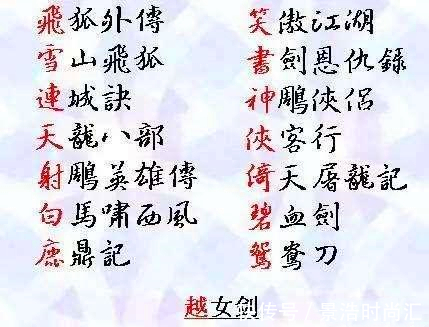 飛狐外傳
雪山飛狐
連城訣
天龍八部
射鵰英雄傳
白馬嘯西風
鹿鼎記
笑傲江湖
書劍恩仇錄
神鵰俠侶
俠客行
倚天屠龍記
碧血劍
鴛鴦刀
越女劍
搜狐号/景浩时尚汇